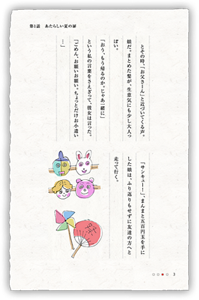 第1話 あたらしい家の扉
とその時、「お父さーん」と近づいてくる声。
娘だ。まとめた髪が、生意気にも少し大人っ
ぽい。
「おう。もう帰るのか。じゃあ一緒に」
という私の言葉をさえぎって、彼女は言った。
「ごめん、お願いお願い、ちょっとだけお小遣い
ー」
「サンキュー！」、まんまと五百円玉を手に
した娘は、ふり返りもせずに友達の方へと
走って行く。
3